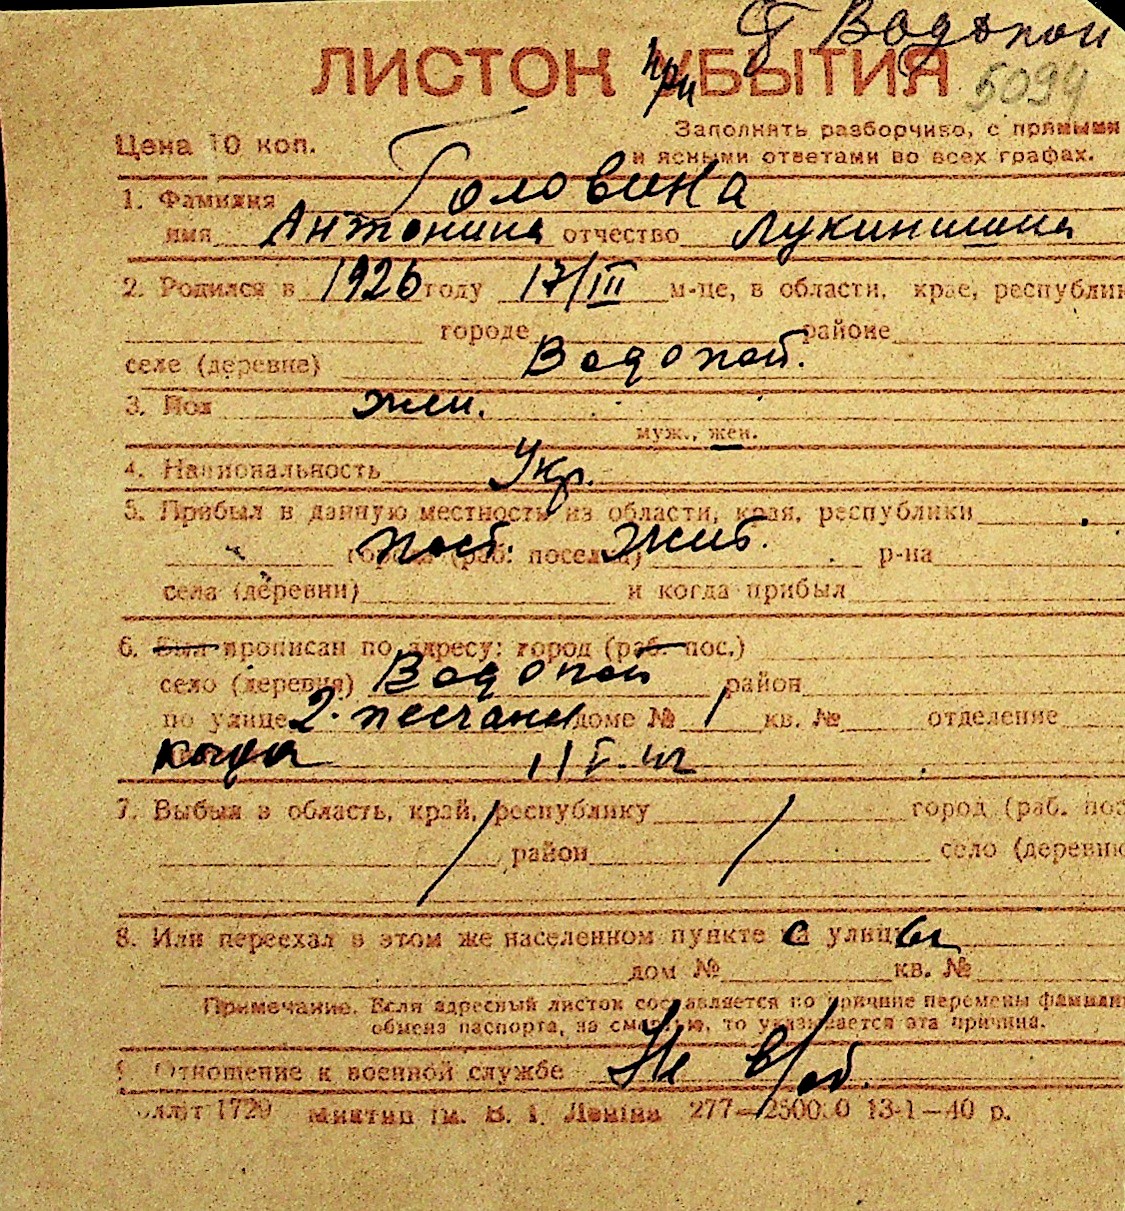 Водопой
ЛИСТОК при УБЫТИЯ
5094
Цена 10 коп.
Заполнять разборчиво, с прямыми
и ясными ответами во всех графах.
1. Фамилия Головина
имя Антонина отчество Лукинишна
2. Родился в 1926 году 17/III м-це, в области, крае, республик
городе районе
селе (деревне) Водопой.
3. Пол жен.
муж., жен.
4. Национальность Укр.
5. Прибыл в данную местность из области, края, республики
города (раб. поселка) пост. жит. р-на
села (деревни) и когда прибыл
6. Был прописан по адресу: город (раб. пос.)
село (деревня) Водопой район
по улице 2. песчаная доме № 1 кв. № отделение
когда
7. Выбыл в область, край, республику город (раб. пос
район село (деревню
8. Или переехал в этом же населенном пункте с улицы
дом № кв. №
Примечание. Если адресный листок составляется по причине перемены фамилии
обмена паспорта, за смертью, то указывается эта причина.
9. Отношение к военной службе Не в/об.
1729 277—250000 13-1—40 р.